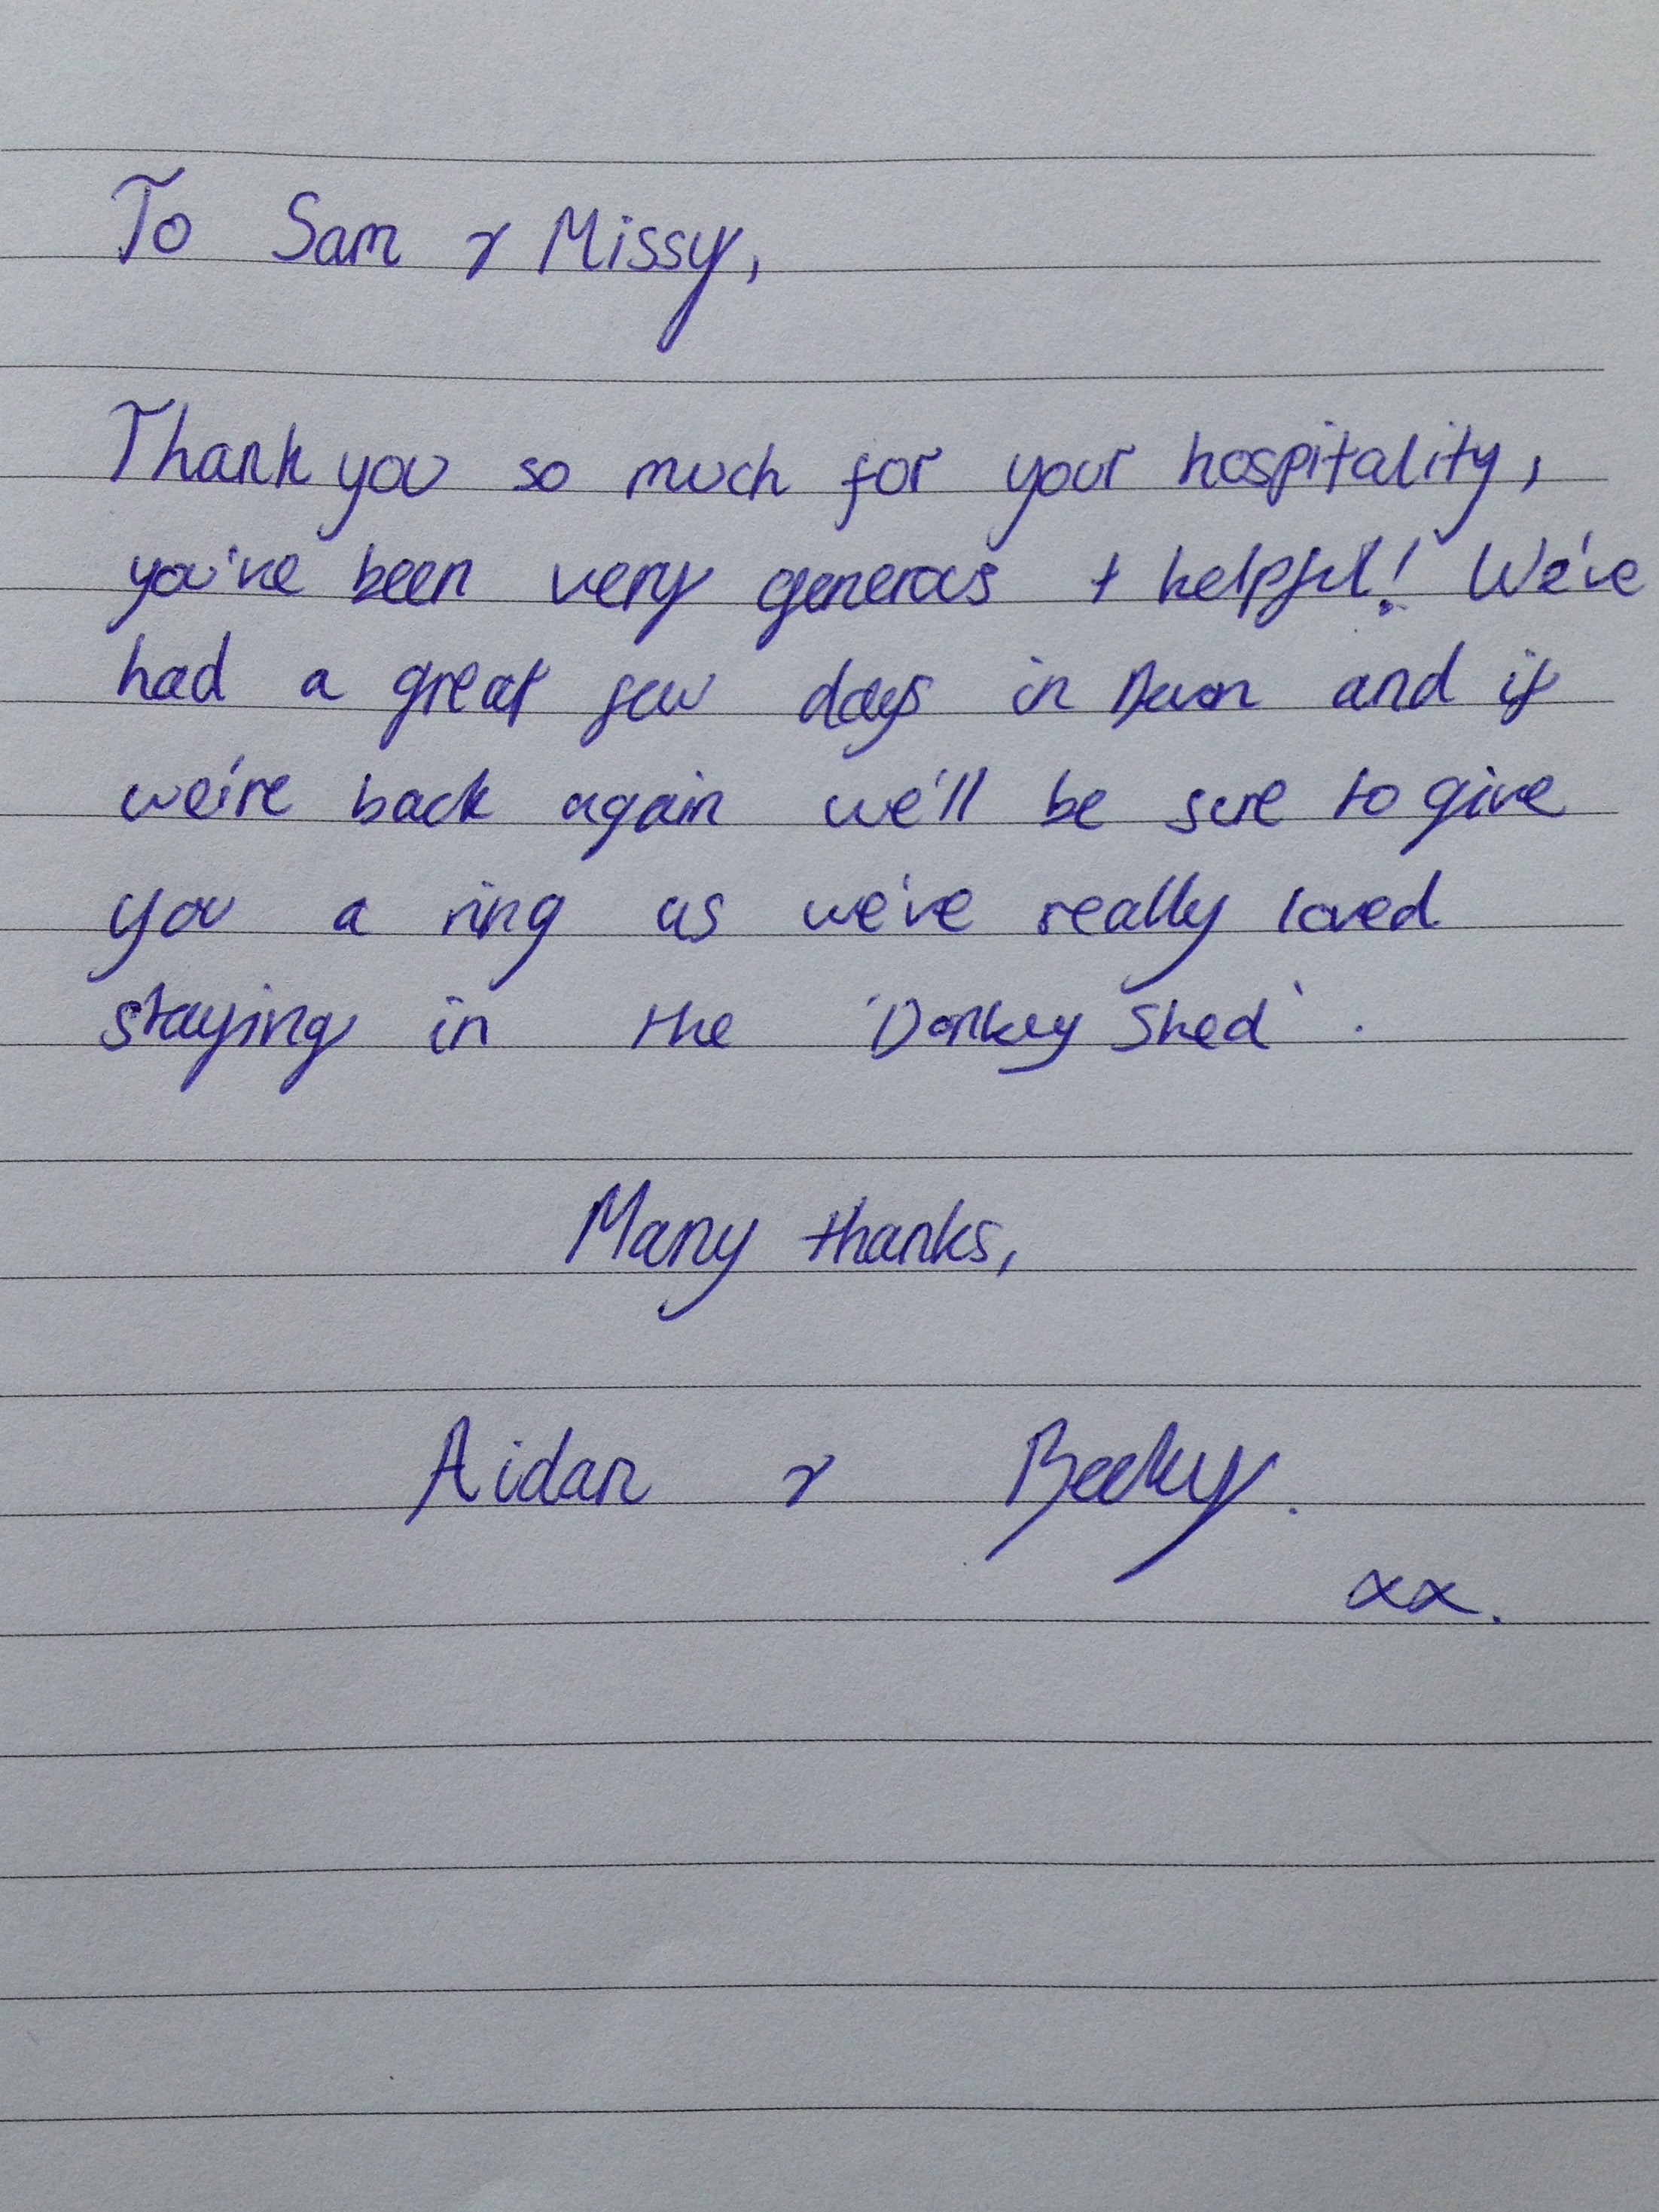 To Sam & Missy,
Thank you so much for your hospitality,
you've been very generous + helpful! We've
had a great few days in Devon and if
we're back again we'll be sure to give
you a ring as we've really loved
staying in the 'Donkey Shed'.
Many thanks,
Aidan & Becky.
xx.